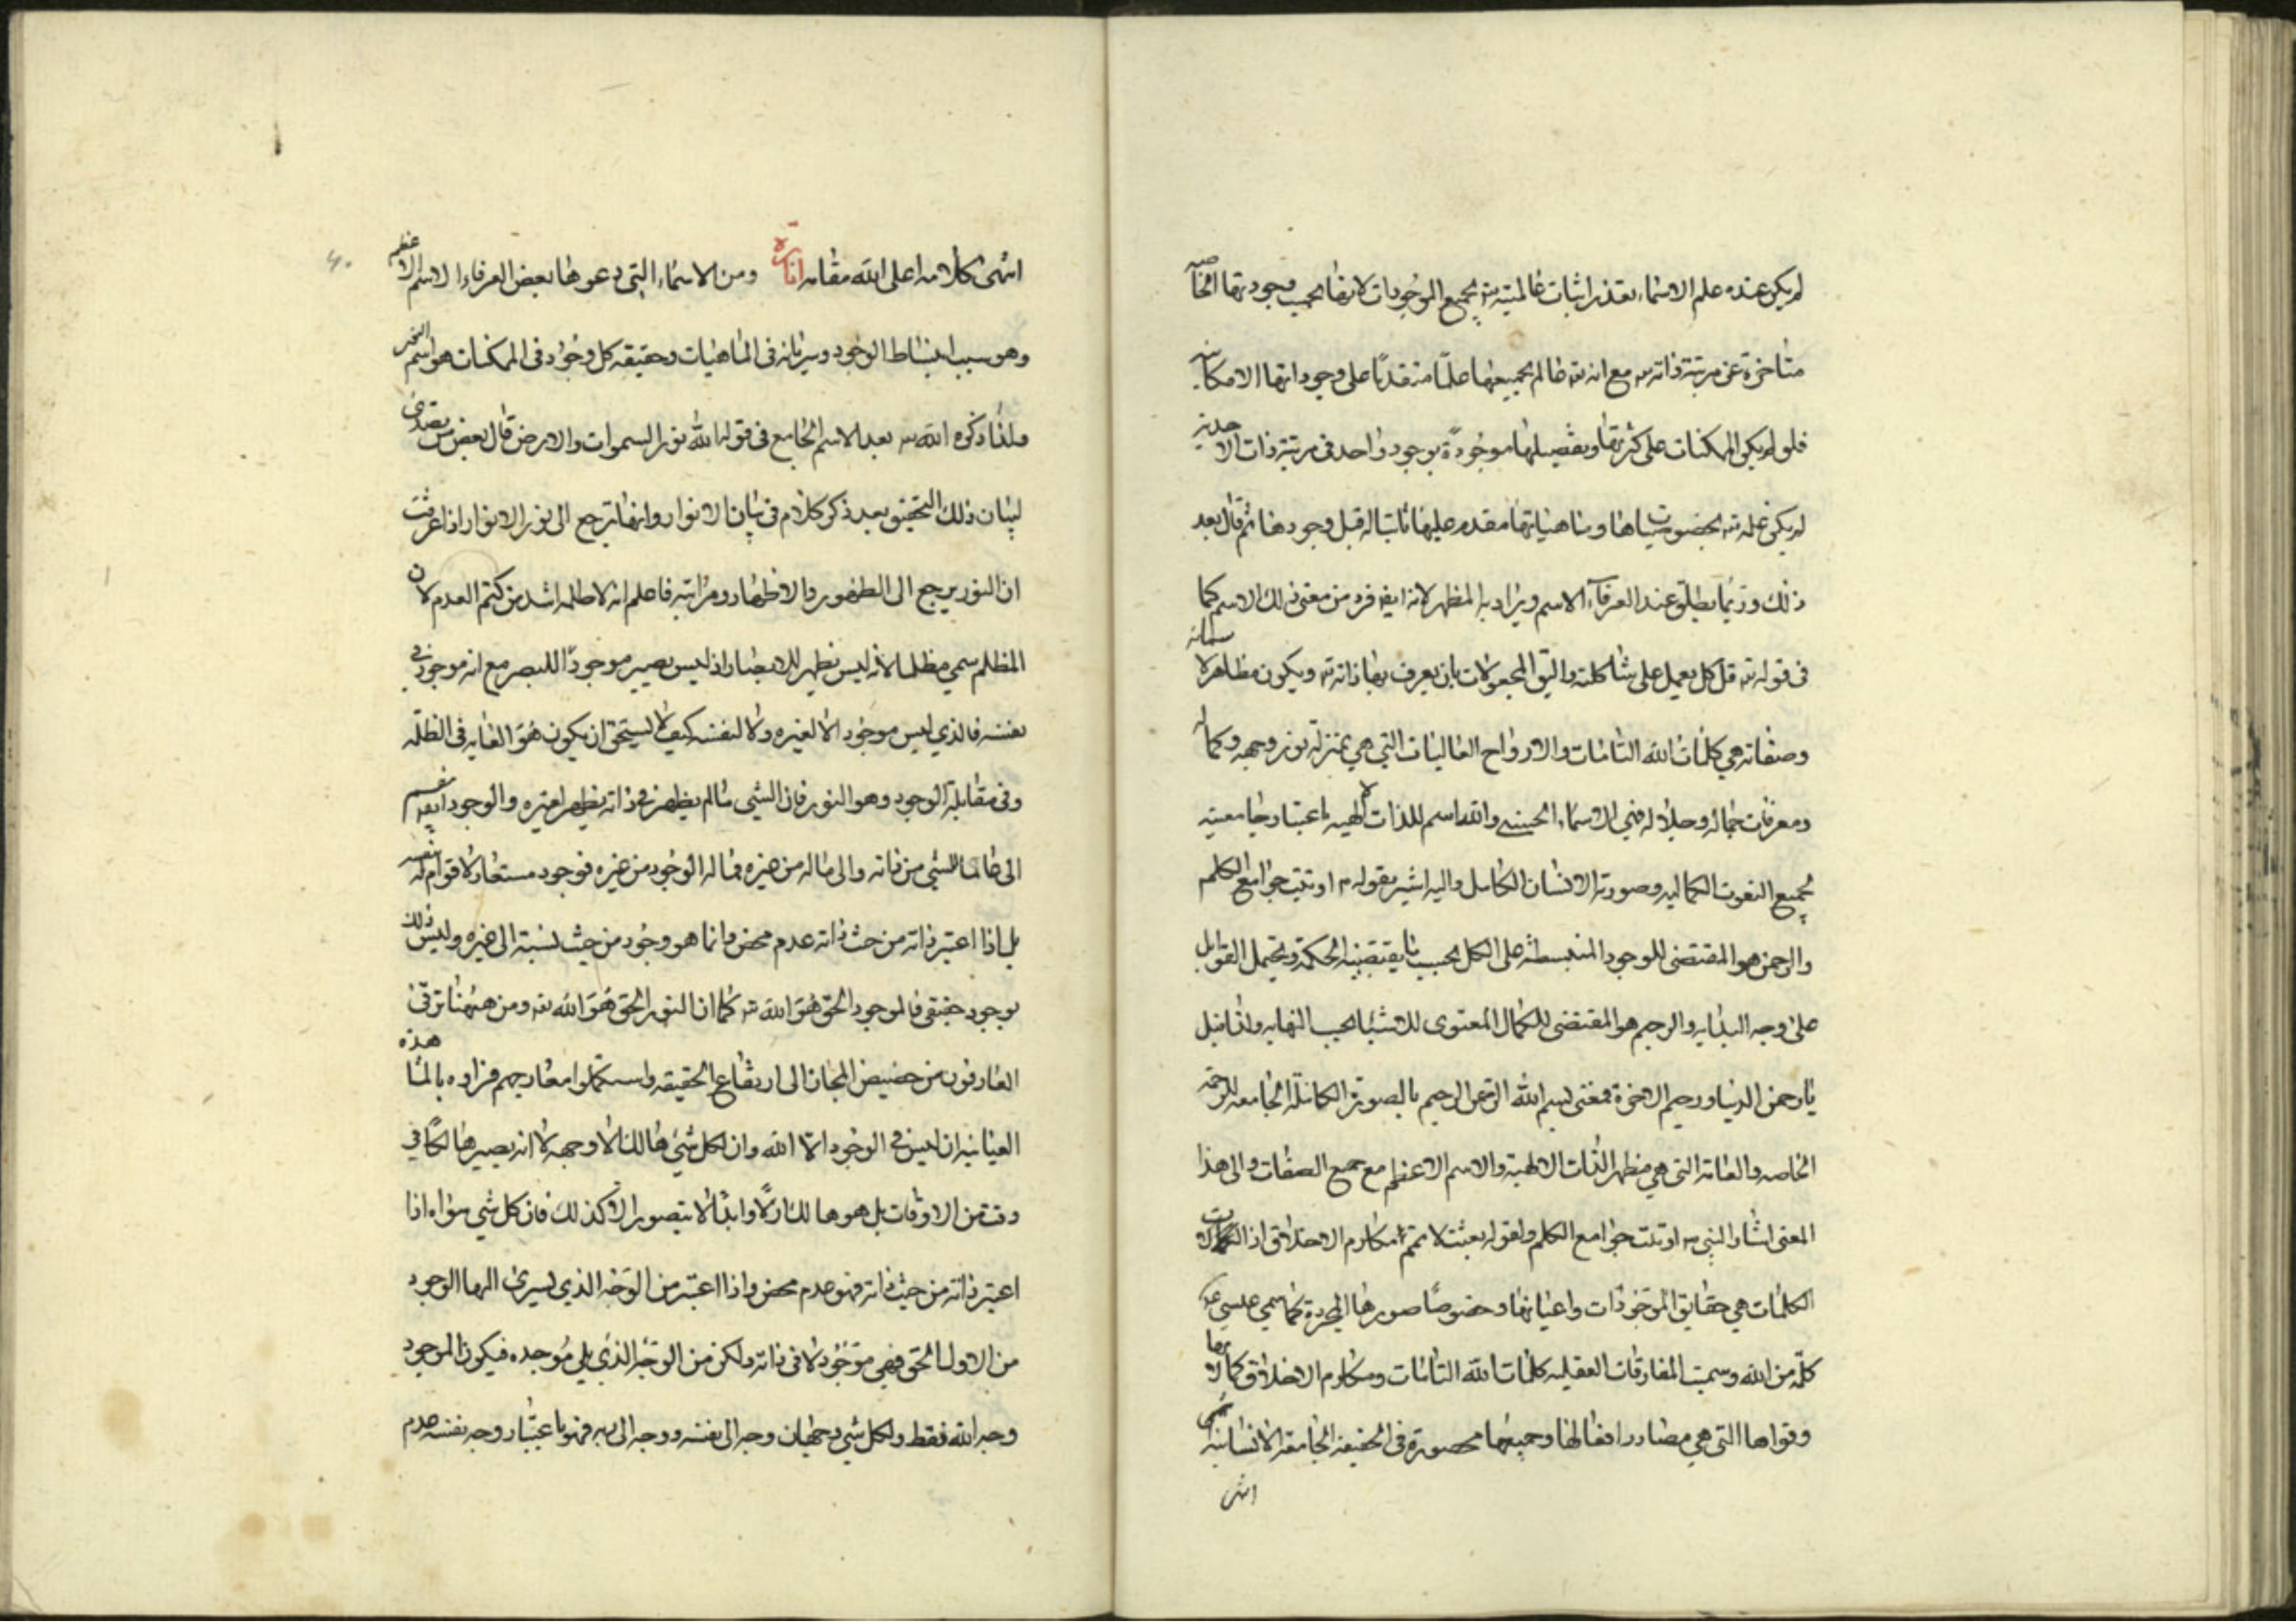 لم يكن عنده علم الاسماء بقدر اثبات عالميته تع بجميع الموجودات لانها بحسب وجودتها الخاصه
متاخرة عن مرتبة ذاته مع انه تع عالم بجميعها علمًا متقدمًا على وجوداتها الامكانيه
فلو لم يكن الممكنات على كثرتها وتفصيلها موجودة بوجود واحد فى مرتبة ذات الاحدية
لم يكن علمه تع بخصوصياتها وماهياتها مقدم عليها ثابتا له قبل وجودها ثم قال بعد
ذلك وربما يطلق عند العرفاء الاسم ويراد به المظهر لانه ايضا فرد من معنى ذلك الاسم كما
فى قوله تع قل كل يعمل على شاكلته واليق المجعولات بان يعرف بها ذاته تع ويكون مظاهر لاسمائه
وصفاته هي كلمات الله التامات والارواح العاليات التي هي بمنزلة نور وجهه وكماله
ومعرفات جماله وجلاله فهي الاسماء الحسنى والله اسم للذات الالهيه باعتبار جامعيته
لجميع النعوت الكماليه وصورته الانسان الكامل واليه اشير بقوله م اوتيت جوامع الكلم
والرحمن هو المقتضى للوجود المنبسطه على الكل بحسب ما يقتضيه الحكمة ويحتمل القوابل
على وجه البدايه والرحيم هو المقتضى للكمال المعنوى للاشياء بحسب النهايه ولذا قيل
يا رحمن الدنيا ورحيم الاخرة فمعنى بسم الله الرحمن الرحيم بالصورة الكاملة الجامعه للرحمة
الخاصه والعامه التى هي مظهر الذات الالهية والاسم الاعظم مع جميع الصفات والى هذا
المعنى اشار النبي اوتيت جوامع الكلم ولقوله بعثت لاتمم مكارم الاخلاق اذ
الكلمات هي حقايق الموجودات واعيانها وخصوصًا صورها المجردة كما سمي عيسى
كلمة من الله وسميت المفارقات العقليه كلمات الله التامات ومكارم الاخلاق كمالاتها
وقواها التى هي مصادر افعالها وجميعها محصورة فى الحقيقة الجامعة الانسانية
انتهى
انتهى كلامه اعلى الله مقامه انارة ومن الاسماء التي دعوها بعض العرفاء الاسم الاعظم
وهو سبب انبساط الوجود وسريانه فى الماهيات وحقيقه كل وجود فى الممكنات هو اسم النور
ولذا ذكره الله تع بعد الاسم الجامع فى قوله الله نور السموات والارض قال بعض من تصدى
لبيان ذلك التحقيق بعد ذكر كلام فى بيان الانوار وانها ترجع الى نور الانوار اذا عرفت
ان النور يرجع الى الظهور والاظهار ومراتبه فاعلم انه لا ظلمه اشد من كتم العدم لان
المظلم سمي مظلما لانه ليس يظهر للابصار اذ ليس يصير موجودًا للبصر مع انه موجود في
نفسه فالذي ليس موجود الا لغيره ولا لنفسه كيف لا يستحق ان يكون هو الغايه فى الظلمه
وفى مقابلة الوجود وهو النور فان الشي مالم يظهر في ذاته لم يظهر لغيره والوجود ايضا ينقسم
الى ما للشي من ذاته والى ماله من غيره فما له الوجود من غيره فوجود مستعار لا قوام له بنفسه
بل اذا اعتبر ذاته من حيث ذاته عدم محض وانما هو وجود من حيث نسبته الى غيره وليس ذلك
بوجود حقيقى فالموجود الحق هو الله تع كما ان النور الحق هو الله تع ومن هيهنا ترقى
العارفون من حضيض المجاز الى ارتفاع الحقيقه واستكملوا معارجهم فراوه بالمشاهده
العيانيه ان ليس في الوجود الا الله وان كل شي هالك الا وجهه لا انه يصير هالكًا في
وقت من الاوقات بل هو هالك ازلًا وابدًا لا يتصور الا كذلك فان كل شي سواه اذا
اعتبر ذاته من حيث ذاته فهو عدم محض واذا اعتبر من الوجه الذي يسرى اليها الوجود
من الاول الحق فهي موجود لا فى ذاته ولكن من الوجه الذي يلي موجده فيكون الموجود
وجه الله فقط ولكل شي وجهان وجه الى نفسه ووجه الى ربه فهو باعتبار وجه نفسه عدم